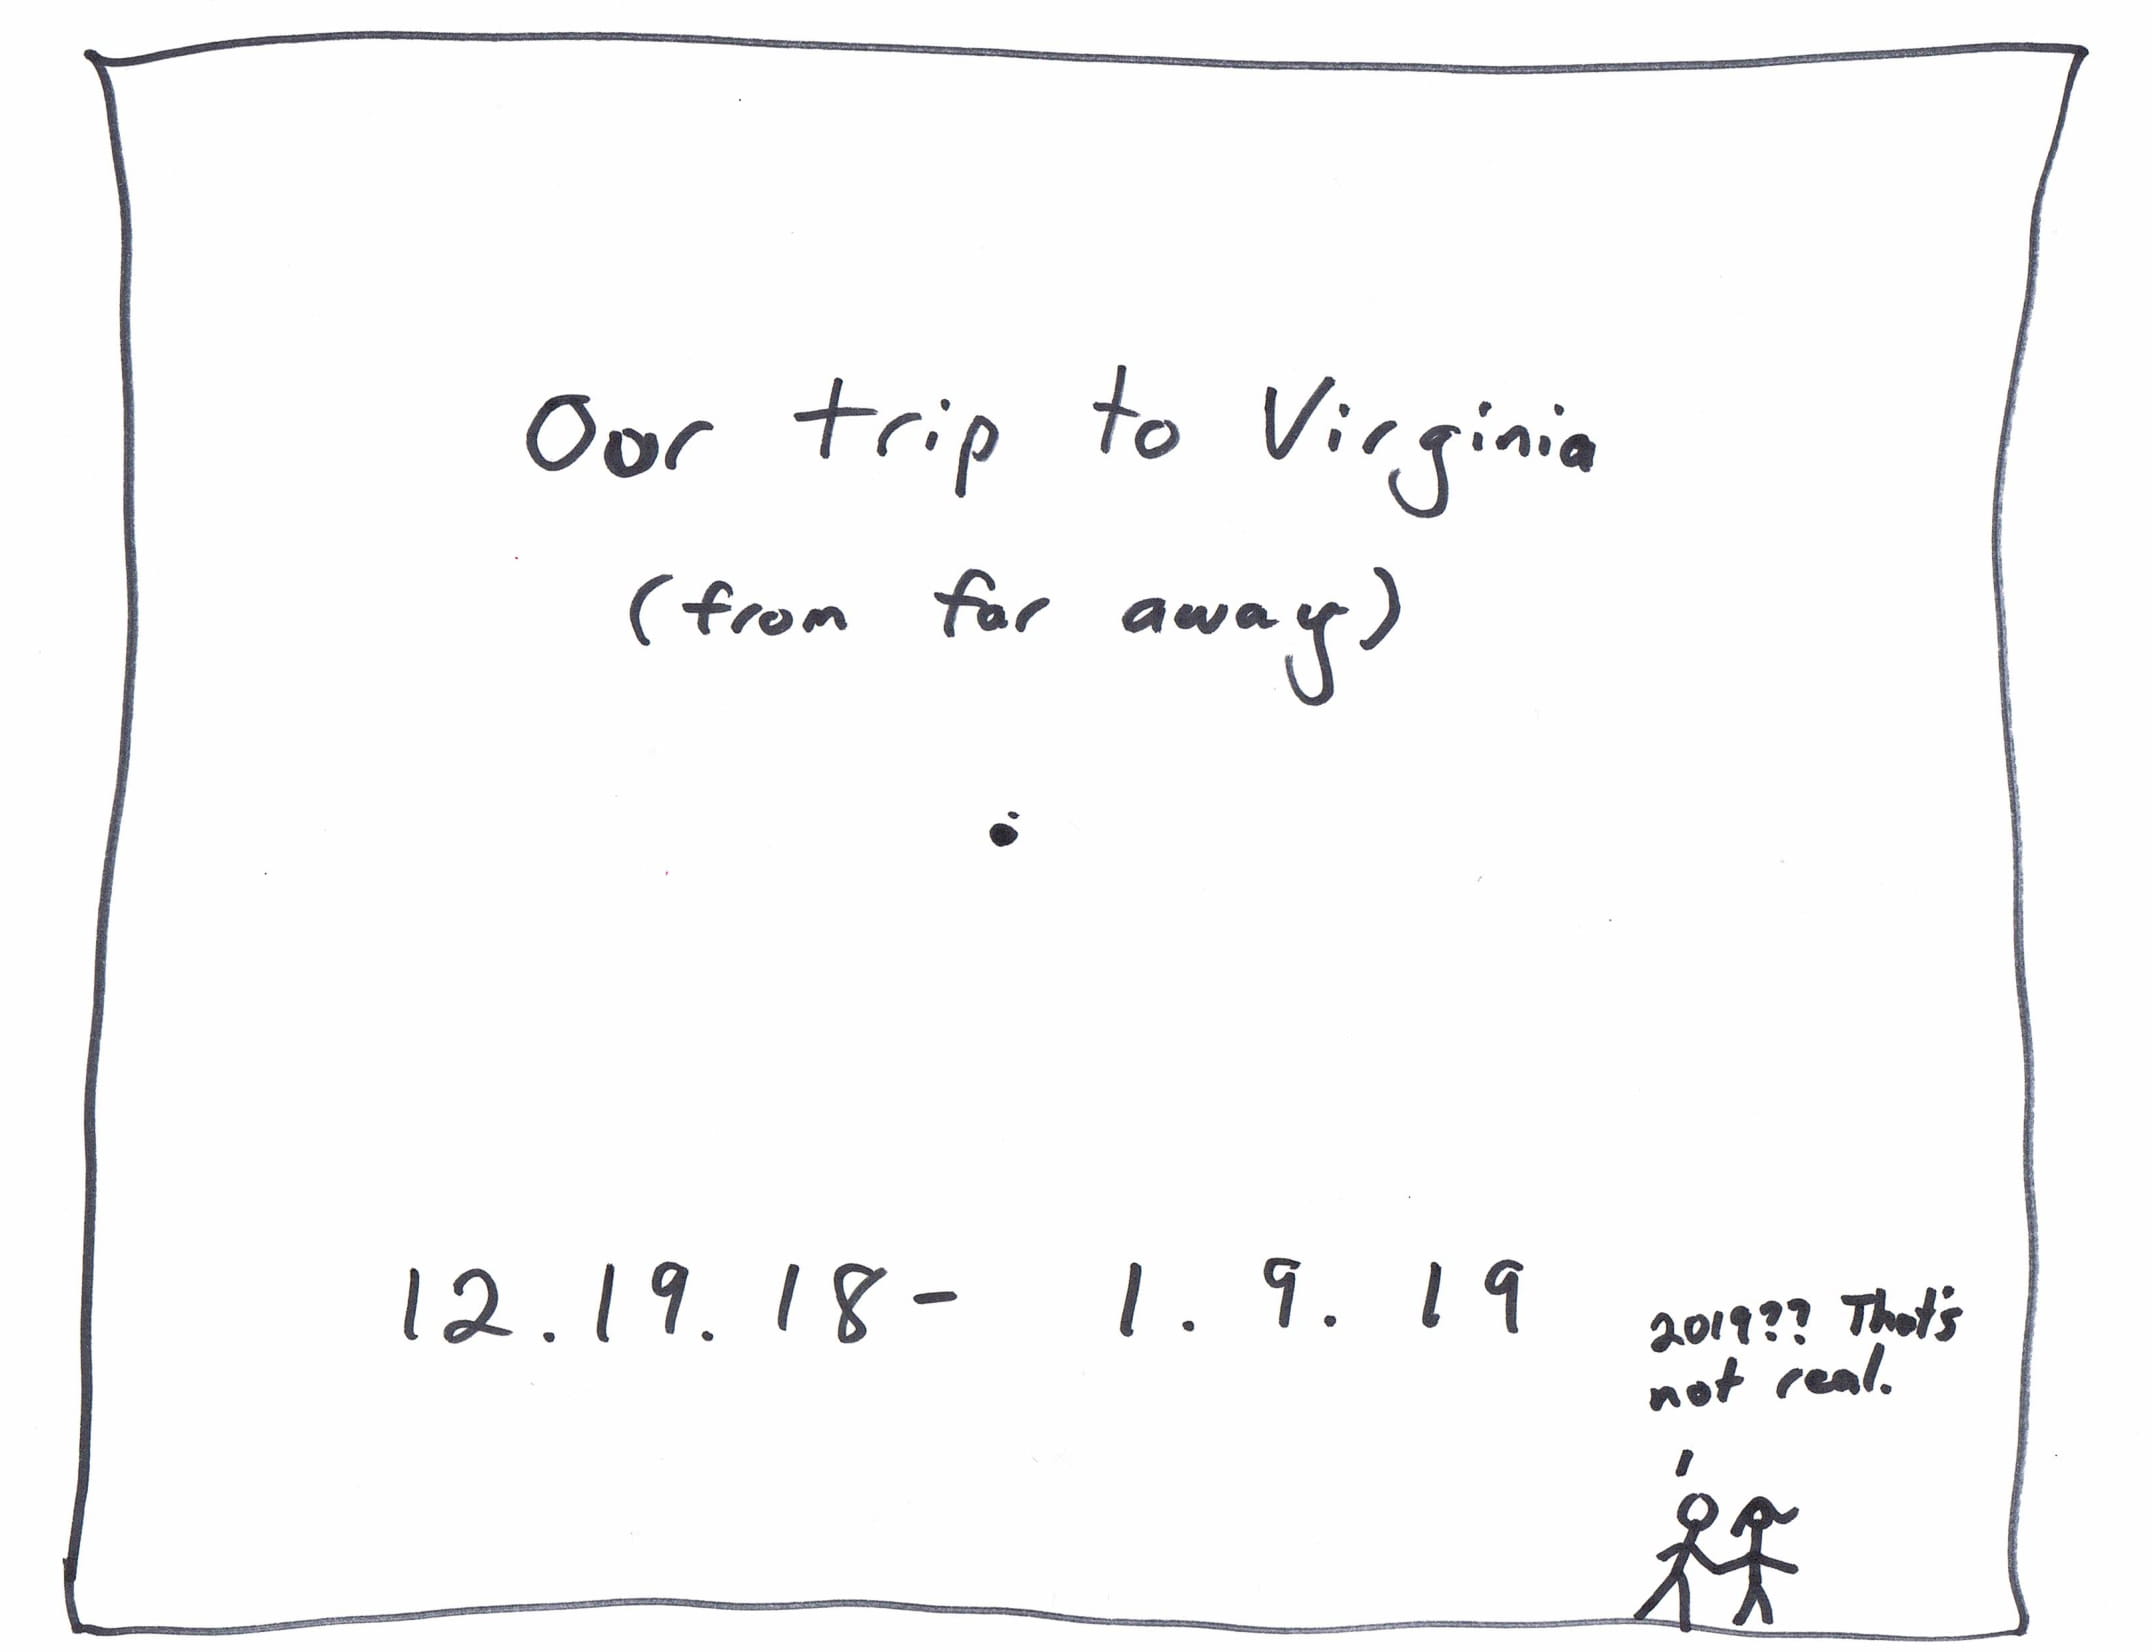 Our trip to Virginia
(from far away)
12.19.18- 1.9.19
2019?? That's
not real.